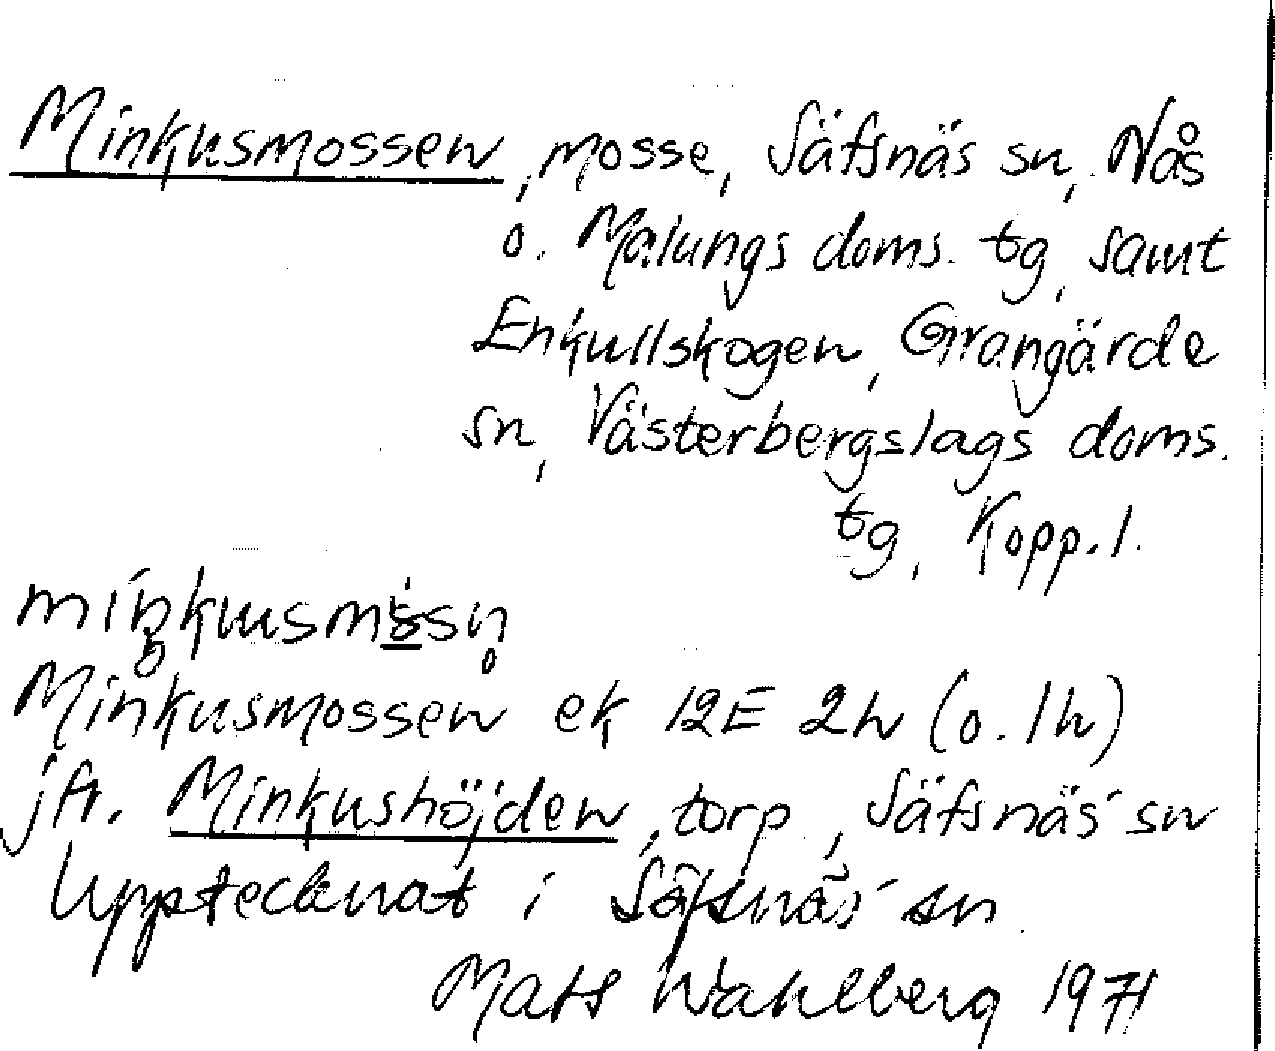 Minkusmossen, mosse, Säfsnäs sn, Nås
o. Malungs doms. tg, samt
Enkullskogen, Grangärde
sn, Västerbergslags doms.
tg, Kopp. l.
Minkusmossen ek 12E 2h (o. 1h)
jfr. Minkushöjden, torp, Säfsnäs sn
Upptecknat i Säfsnäs sn
Mats Wahlberg 1971